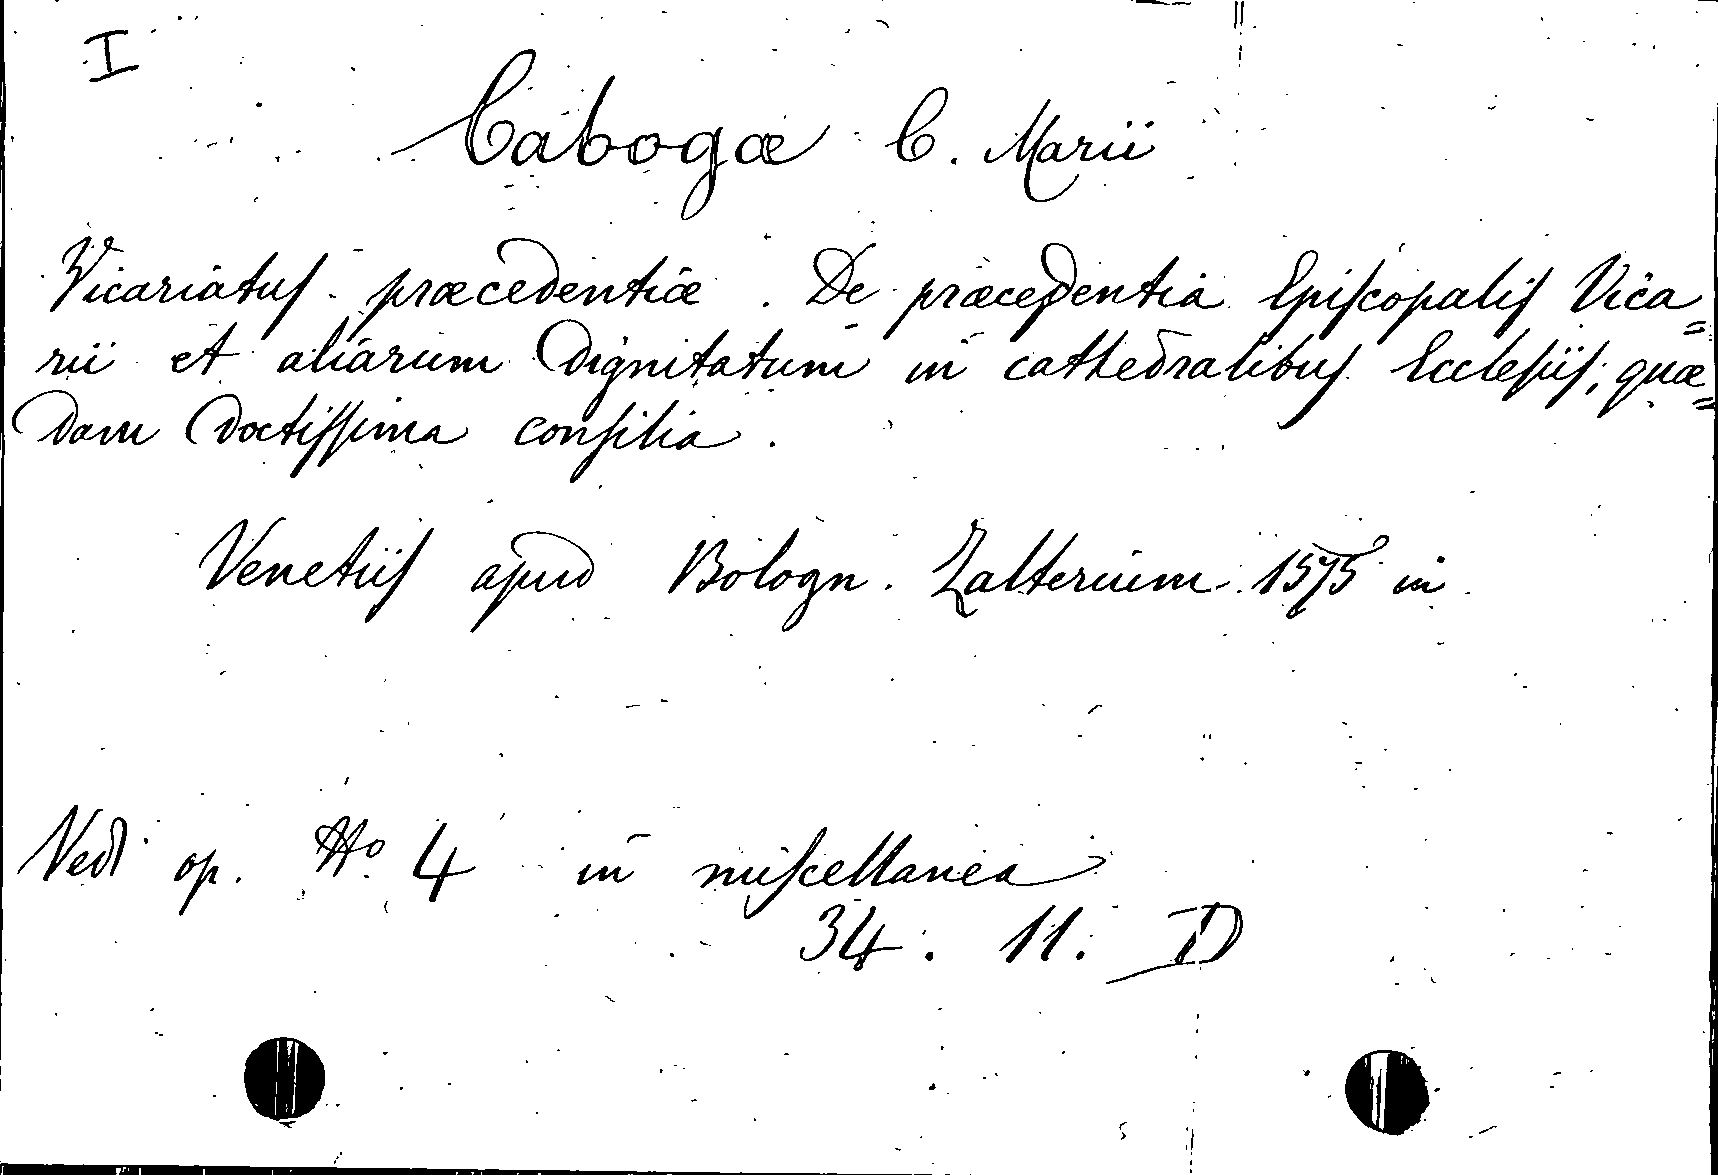 I
Cabogæ C. Marii
Vicariatuſ præcedentiæ. De præcedentia Epiſcopaliſ Vica=
rii et aliarum Dignitatum in cathedralibuſ Eccleſiiſ; quæ=
dam doctiſſima conſilia.
Venetiiſ apud Bologn. Zalterium 1575 in
Vedi op. No. 4 in miſcellanea
34. 11. D